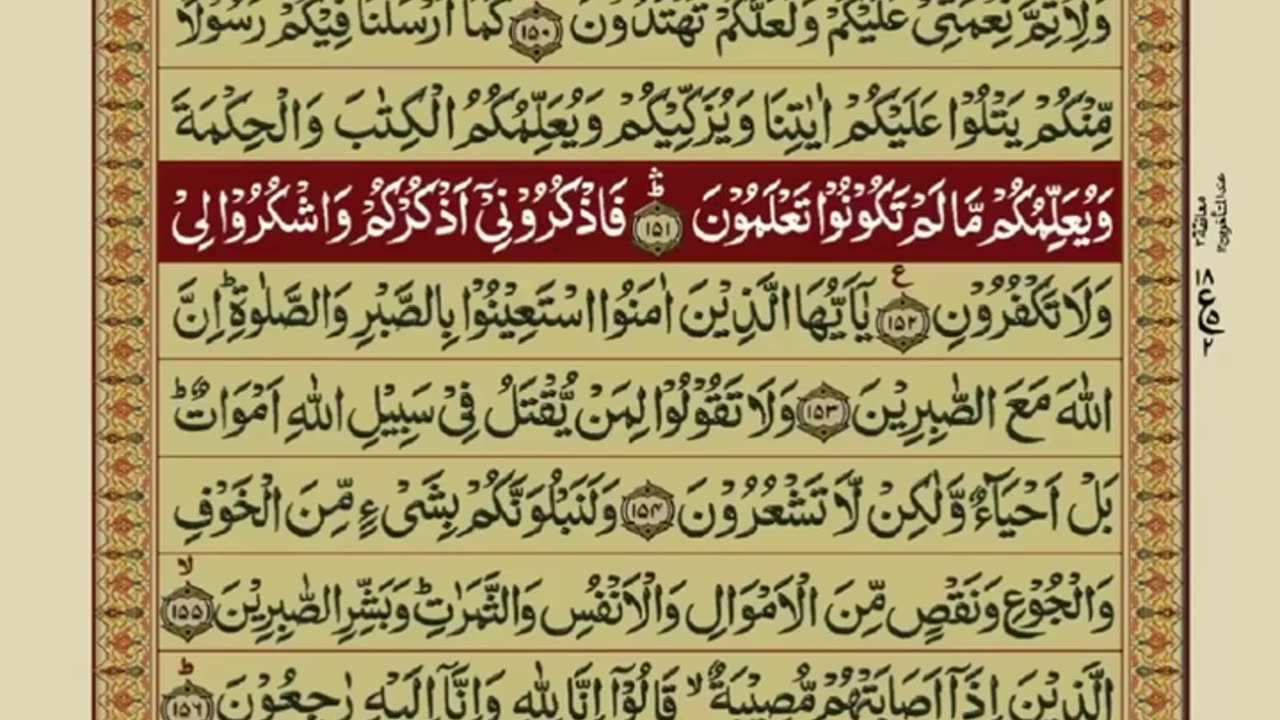 وَلِاُتِمَّ نِعْمَتِىْ عَلَيْكُمْ وَلَعَلَّكُمْ تَهْتَدُوْنَ ۝۱۵۰ كَمَاۤ اَرْسَلْنَا فِيْكُمْ رَسُوْلًا
مِّنْكُمْ يَتْلُوْا عَلَيْكُمْ اٰيٰتِنَا وَيُزَكِّيْكُمْ وَيُعَلِّمُكُمُ الْكِتٰبَ وَالْحِكْمَةَ
وَيُعَلِّمُكُمْ مَّا لَمْ تَكُوْنُوْا تَعْلَمُوْنَ ۝۱۵۱ۛؕ فَاذْكُرُوْنِىْۤ اَذْكُرْكُمْ وَاشْكُرُوْا لِىْ
وَلَا تَكْفُرُوْنِ ۝۱۵۲ ع يٰۤاَيُّهَا الَّذِيْنَ اٰمَنُوا اسْتَعِيْنُوْا بِالصَّبْرِ وَالصَّلٰوةِؕ اِنَّ
اللّٰهَ مَعَ الصّٰبِرِيْنَ ۝۱۵۳ وَلَا تَقُوْلُوْا لِمَنْ يُّقْتَلُ فِىْ سَبِيْلِ اللّٰهِ اَمْوَاتٌؕ
بَلْ اَحْيَآءٌ وَّلٰكِنْ لَّا تَشْعُرُوْنَ ۝۱۵۴ وَلَنَبْلُوَنَّكُمْ بِشَىْءٍ مِّنَ الْخَوْفِ
وَالْجُوْعِ وَنَقْصٍ مِّنَ الْاَمْوَالِ وَالْاَنْفُسِ وَالثَّمَرٰتِؕ وَبَشِّرِ الصّٰبِرِيْنَ ۝۱۵۵ۙ
الَّذِيْنَ اِذَاۤ اَصَابَتْهُمْ مُّصِيْبَةٌۙ قَالُوْۤا اِنَّا لِلّٰهِ وَاِنَّاۤ اِلَيْهِ رٰجِعُوْنَ ۝۱۵۶ؕ
معانقة ۲
عند المتأخرين ۱۲
۱۸
ع ۵
۲